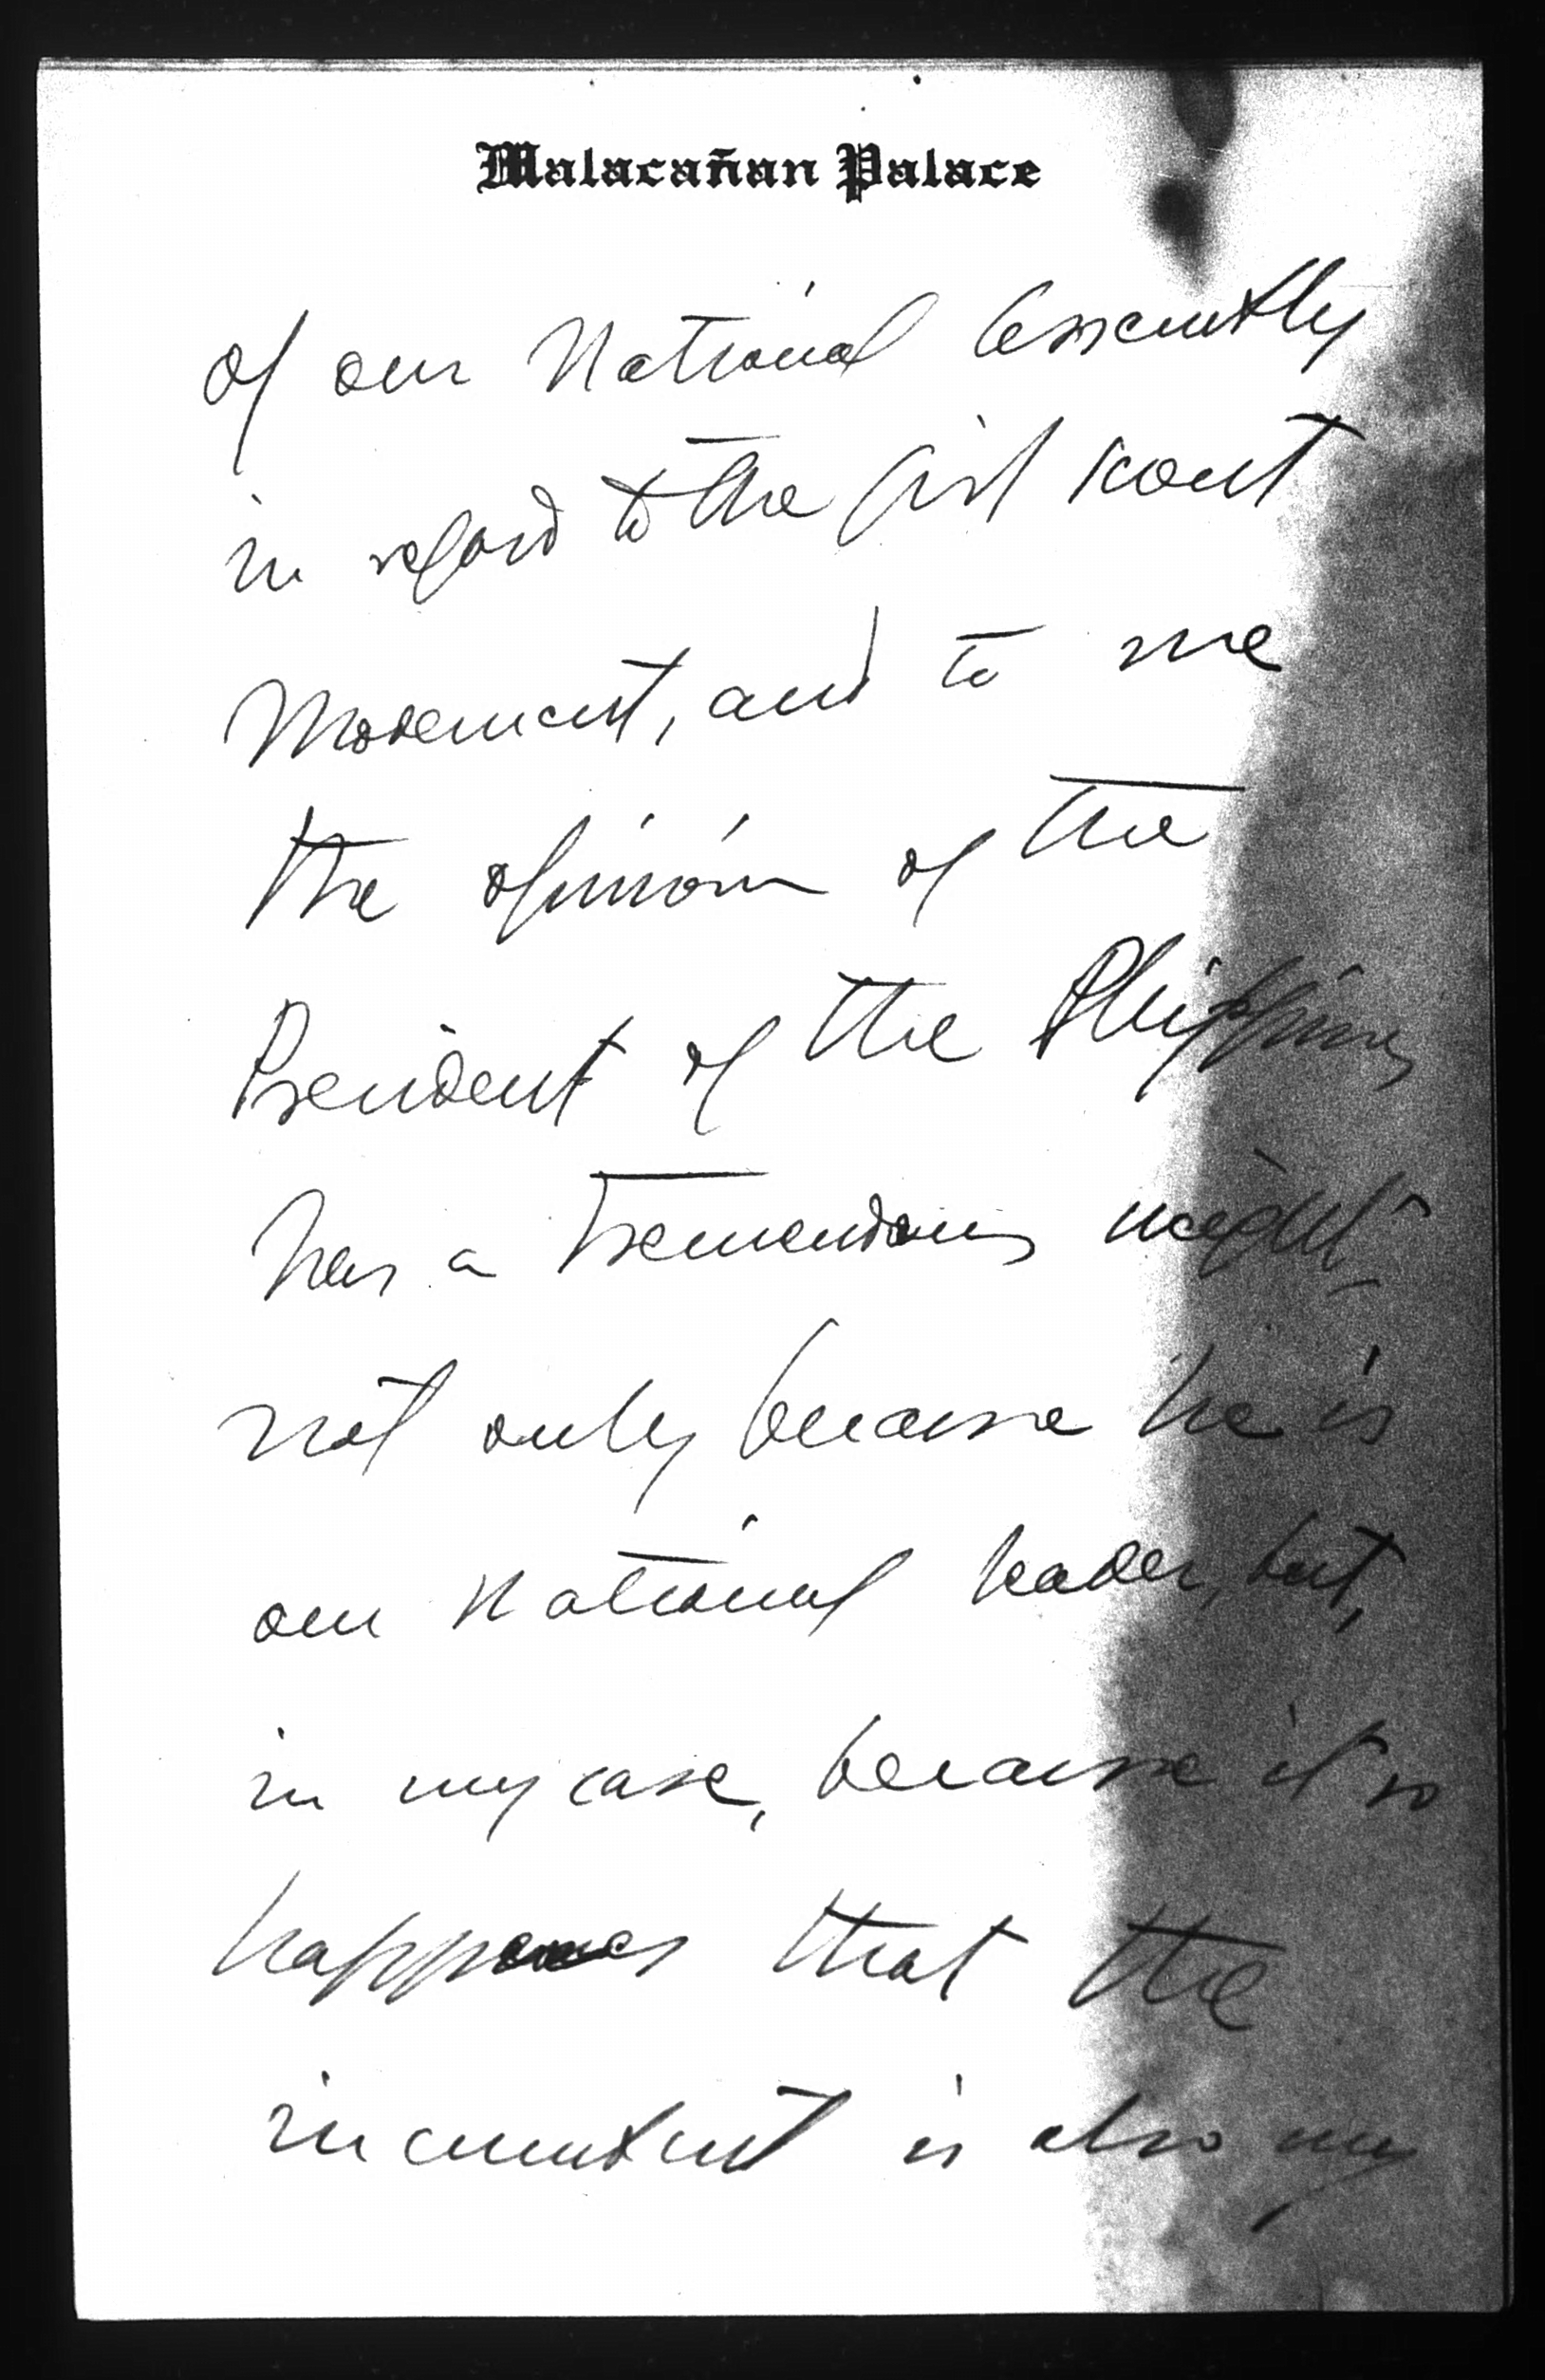 Malacañan Palace
of our National Assembly
in regard to the girl scout
Movement, and to me
the opinion of the
President of the Philippines
has a tremendous weight,
not only because he is
our National leader, but,
in my case, because it so
happens that the
incumbent is also my